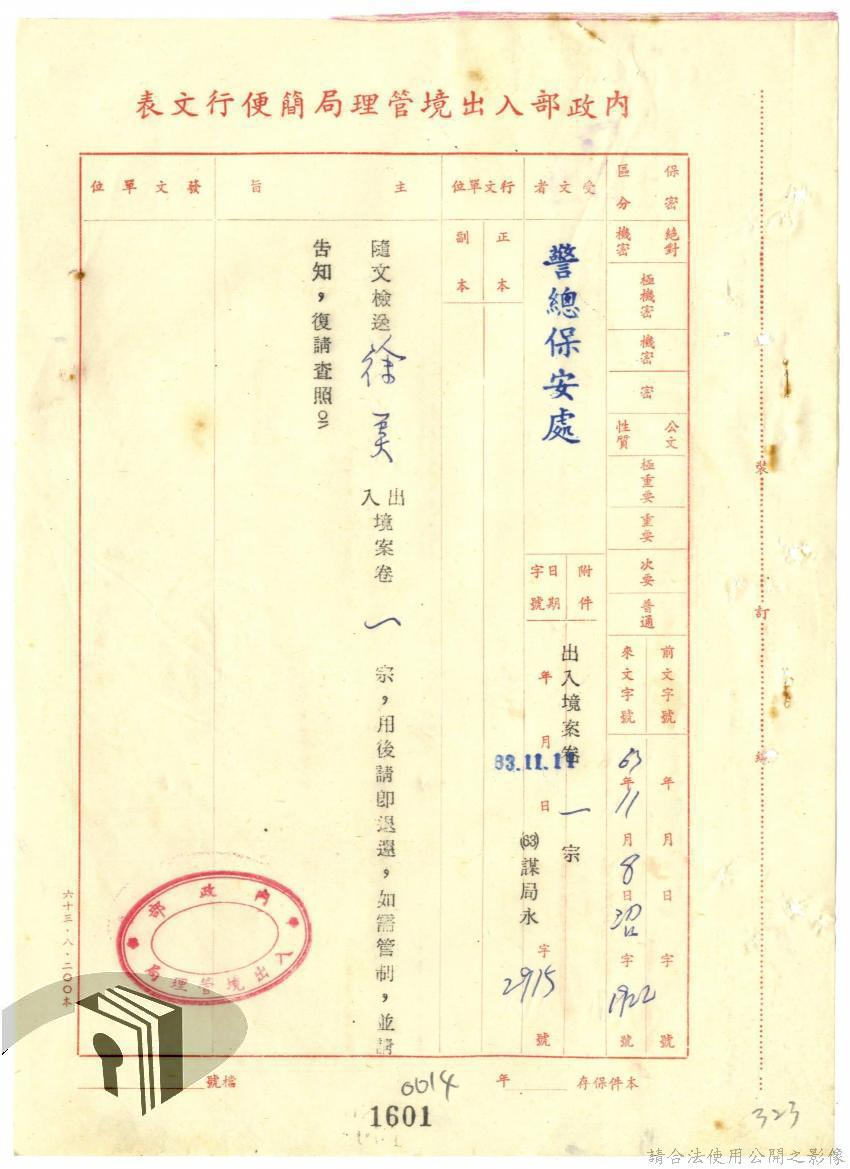 內政部入出境管理局簡便行文表
保密區分
絕對機密
極機密
機密
密
公文性質
極重要
重要
次要
普通
前文字號
年 月 日 字 號
來文字號
63年11月8日 沼字1922號
受文者
警總保安處
附件
出入境案卷 一 宗
日期字號
年 月 日
63.11.11
(63)謀局永 字 2915 號
行文單位
正本
副本
主旨
隨文檢送 徐 美 出入境案卷 一 宗,用後請卽退還,如需管制,並請
告知,復請查照。
發文單位
內政部入出境管理局
六十三.八.二〇〇本
裝
訂
線
檔號
本件保存 年
0014
1601
323
請合法使用公開之影像